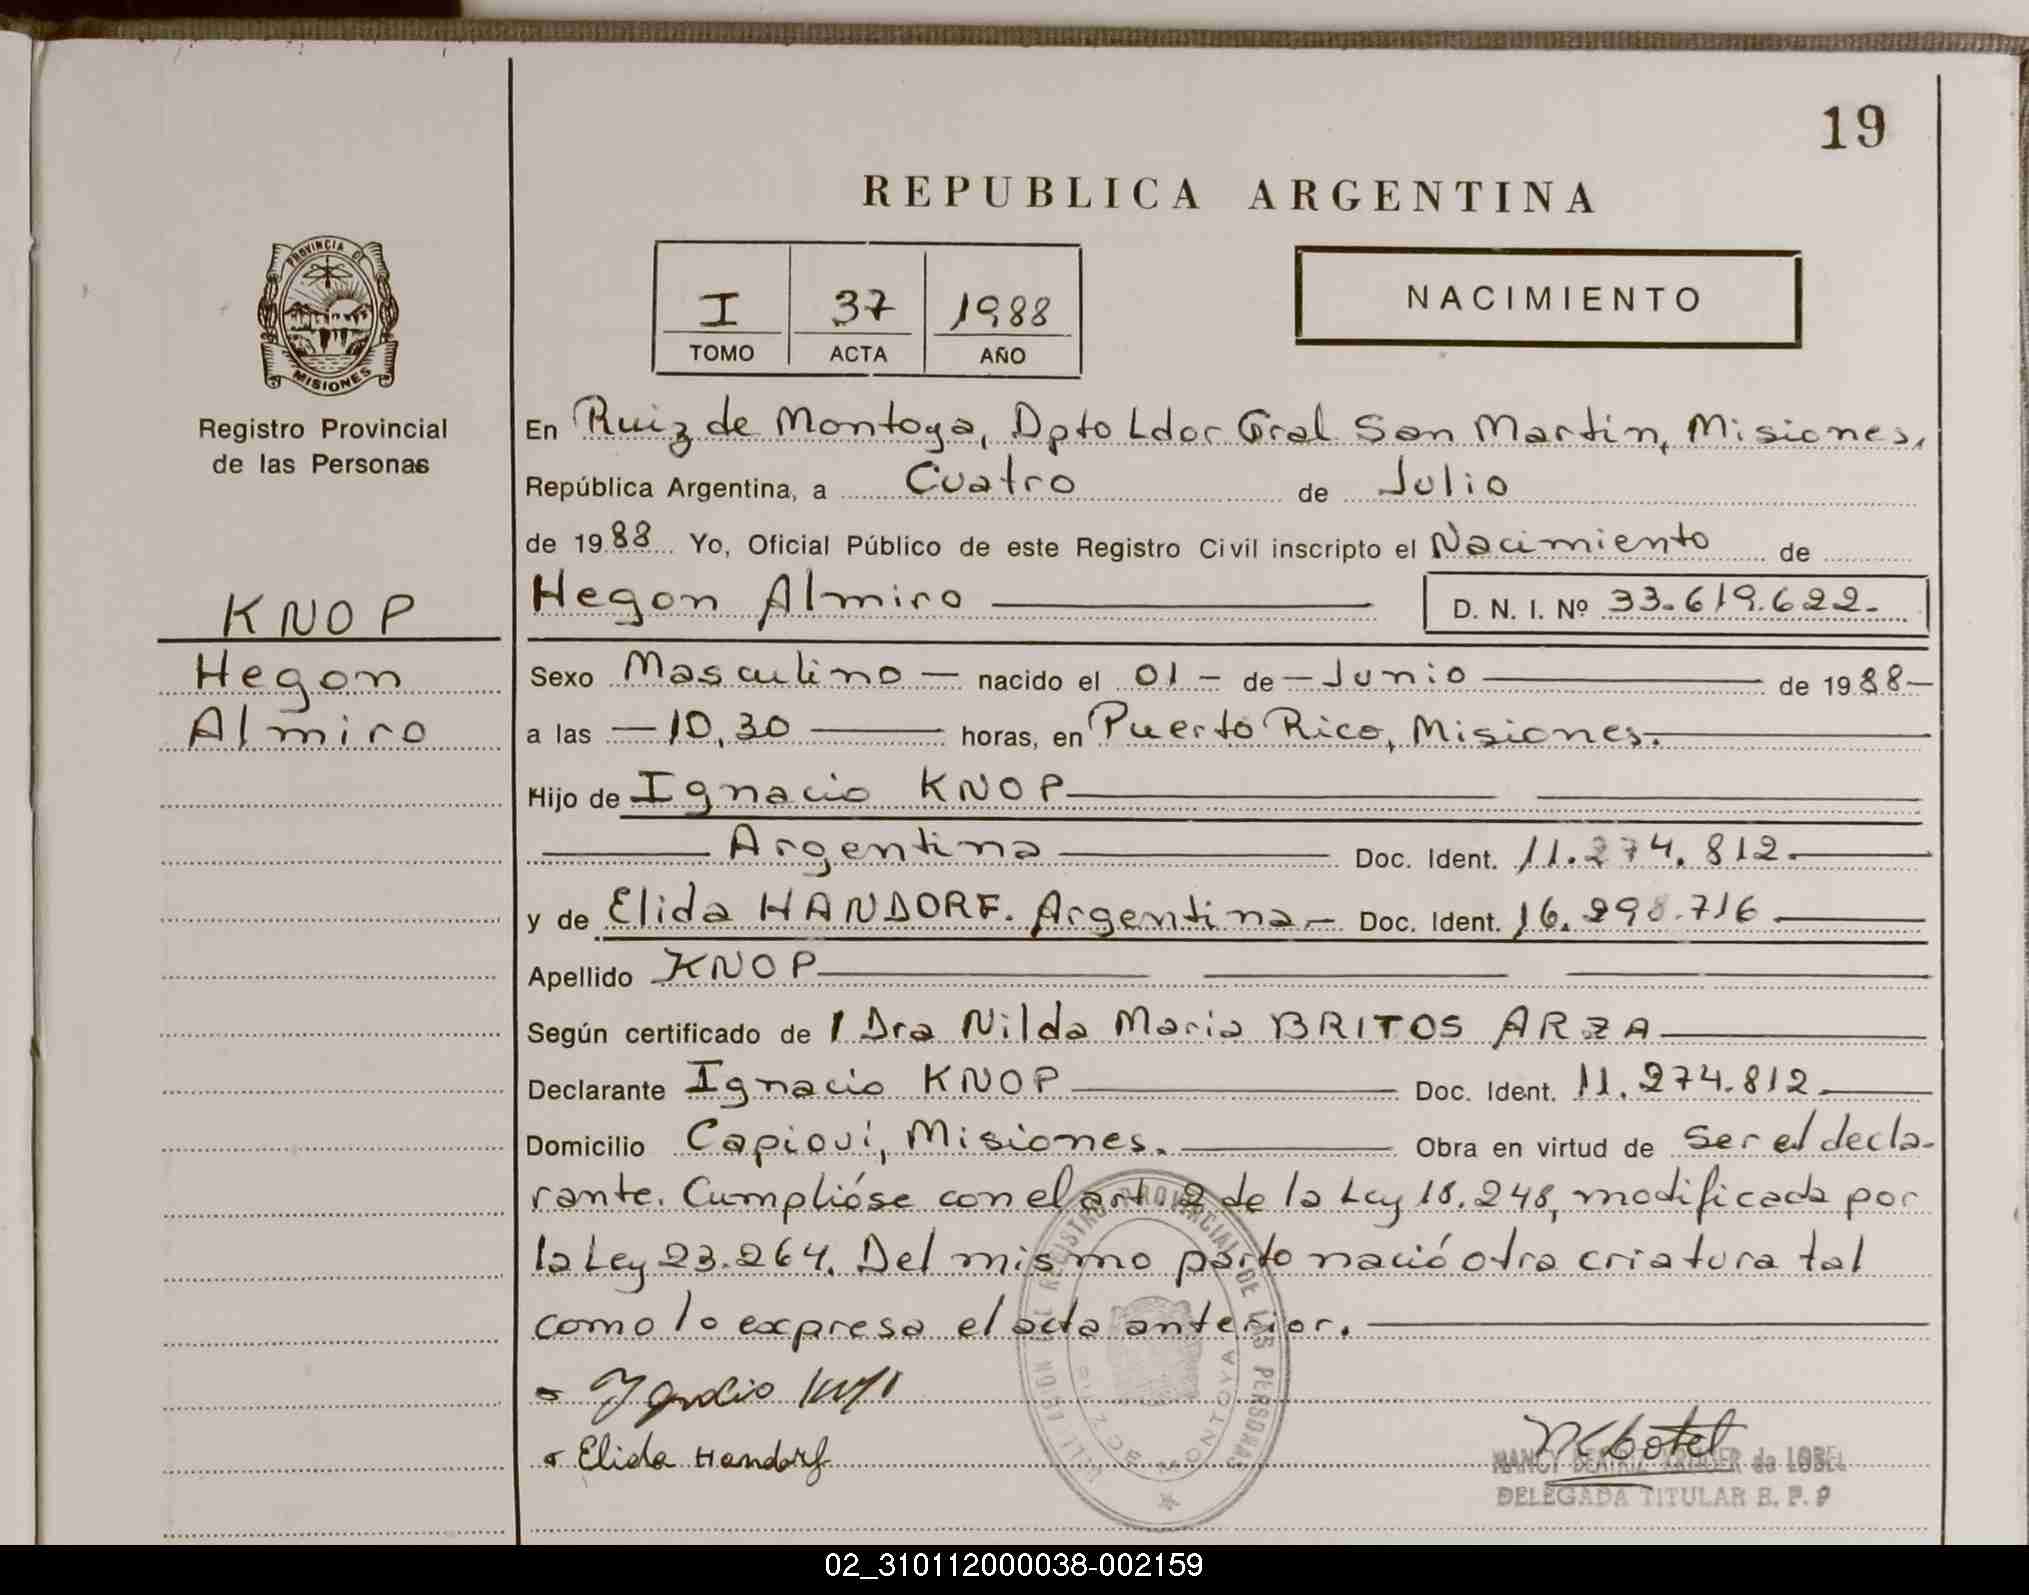 19
REPUBLICA ARGENTINA
PROVINCIA DE
MISIONES
Registro Provincial
de las Personas
I 37 1988
TOMO ACTA AÑO
NACIMIENTO
KNOP
Hegon
Almiro
En Ruiz de Montoya, Dpto Ldor Gral San Martín, Misiones,
República Argentina, a Cuatro de Julio
de 1988 Yo, Oficial Público de este Registro Civil inscripto el Nacimiento de
Hegon Almiro D. N. I. Nº 33.619.622.
Sexo Masculino nacido el 01 - de - Junio de 1988
a las 10,30 horas, en Puerto Rico, Misiones.
Hijo de Ignacio KNOP
Argentina Doc. Ident. 11.274.812.
y de Elida HANDORF. Argentina. Doc. Ident. 16.298.716
Apellido KNOP
Según certificado de l Dra Nilda Maria BRITOS ARZA
Declarante Ignacio KNOP Doc. Ident. 11.274.812
Domicilio Capioví, Misiones. Obra en virtud de Ser el decla-
rante. Cumplióse con el art 2 de la Ley 18.248, modificada por
la Ley 23.264. Del mismo parto nació otra criatura tal
como lo expresa el acta anterior.
Ignacio Knop
Elida Handorf
REGISTRO PROVINCIAL DE LAS PERSONAS
MONTOYA
NANCY BEATRIZ de LOBEL
DELEGADA TITULAR R. P. P
02_310112000038-002159